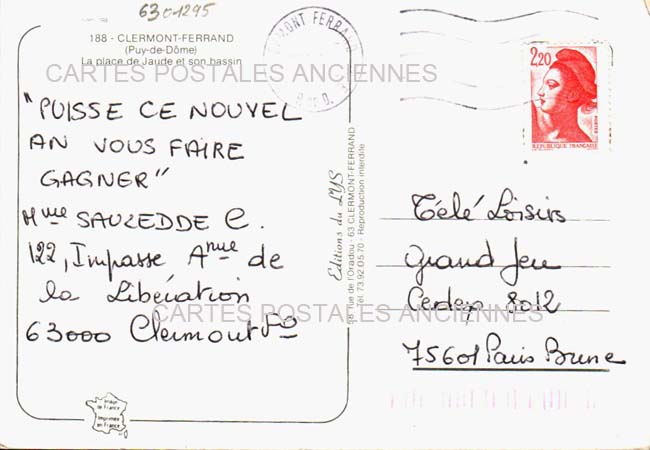 6301295
188 - CLERMONT-FERRAND
(Puy-de-Dôme)
La place de Jaude et son bassin
CARTES POSTALES ANCIENNES
CLERMONT FERRAND
P. DE D.
2,20
REPUBLIQUE FRANÇAISE
"PUISSE CE NOUVEL
AN VOUS FAIRE
GAGNER"
Mme SAUZEDDE C.
122, Impasse Anue de
la Libération
63000 Clermont Fd
Editions du LYS
58 rue de l'Oradou - 63 CLERMONT-FERRAND
Tél. 73.92.05.70 - Reproduction interdite
Télé Loisirs
Grand Jeu
Cedex 8012
75601 Paris Brune
CARTES POSTALES ANCIENNES
Image
de France
Imprimée
en France